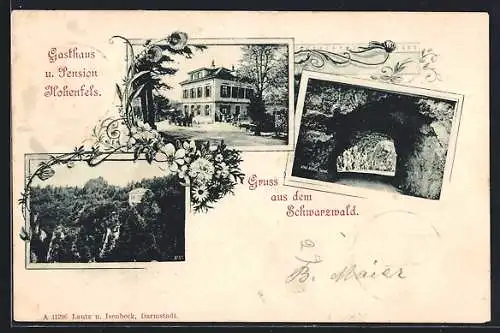 Gasthaus
u. Pension
Hohenfels.
Gruss
aus dem
Schwarzwald.
B. Maier
A 11296 Lautz u. Isenbeck, Darmstadt.